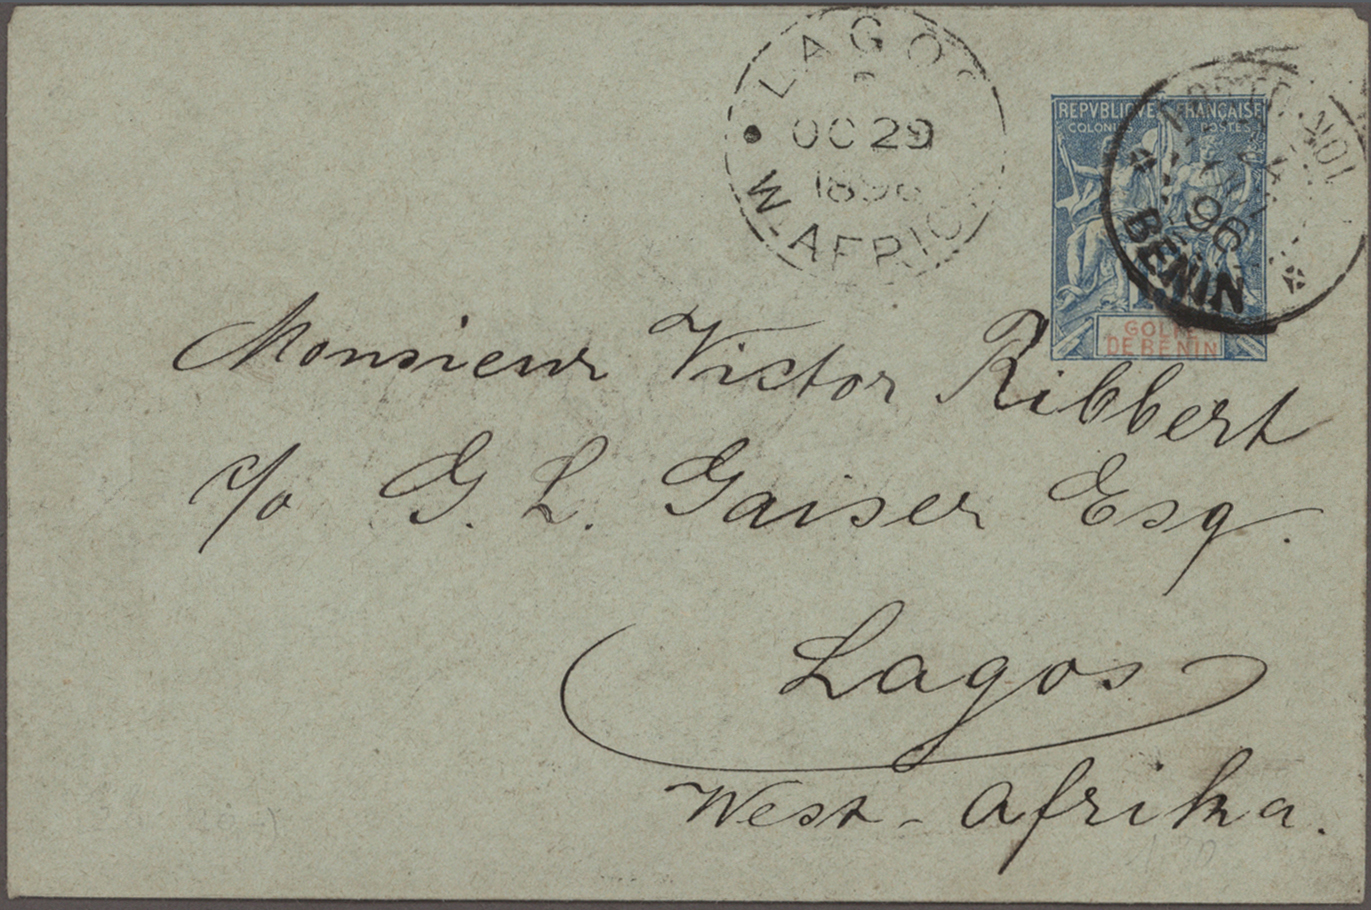 LAGOS
OC 29
1896
W. AFRICA
REPVBLIQUE FRANÇAISE
COLONIES POSTES
GOLFE
DE BENIN
96
BENIN
Monsieur Victor Ribbert
c/o G. L. Gaiser Esq.
Lagos
West-Afrika.